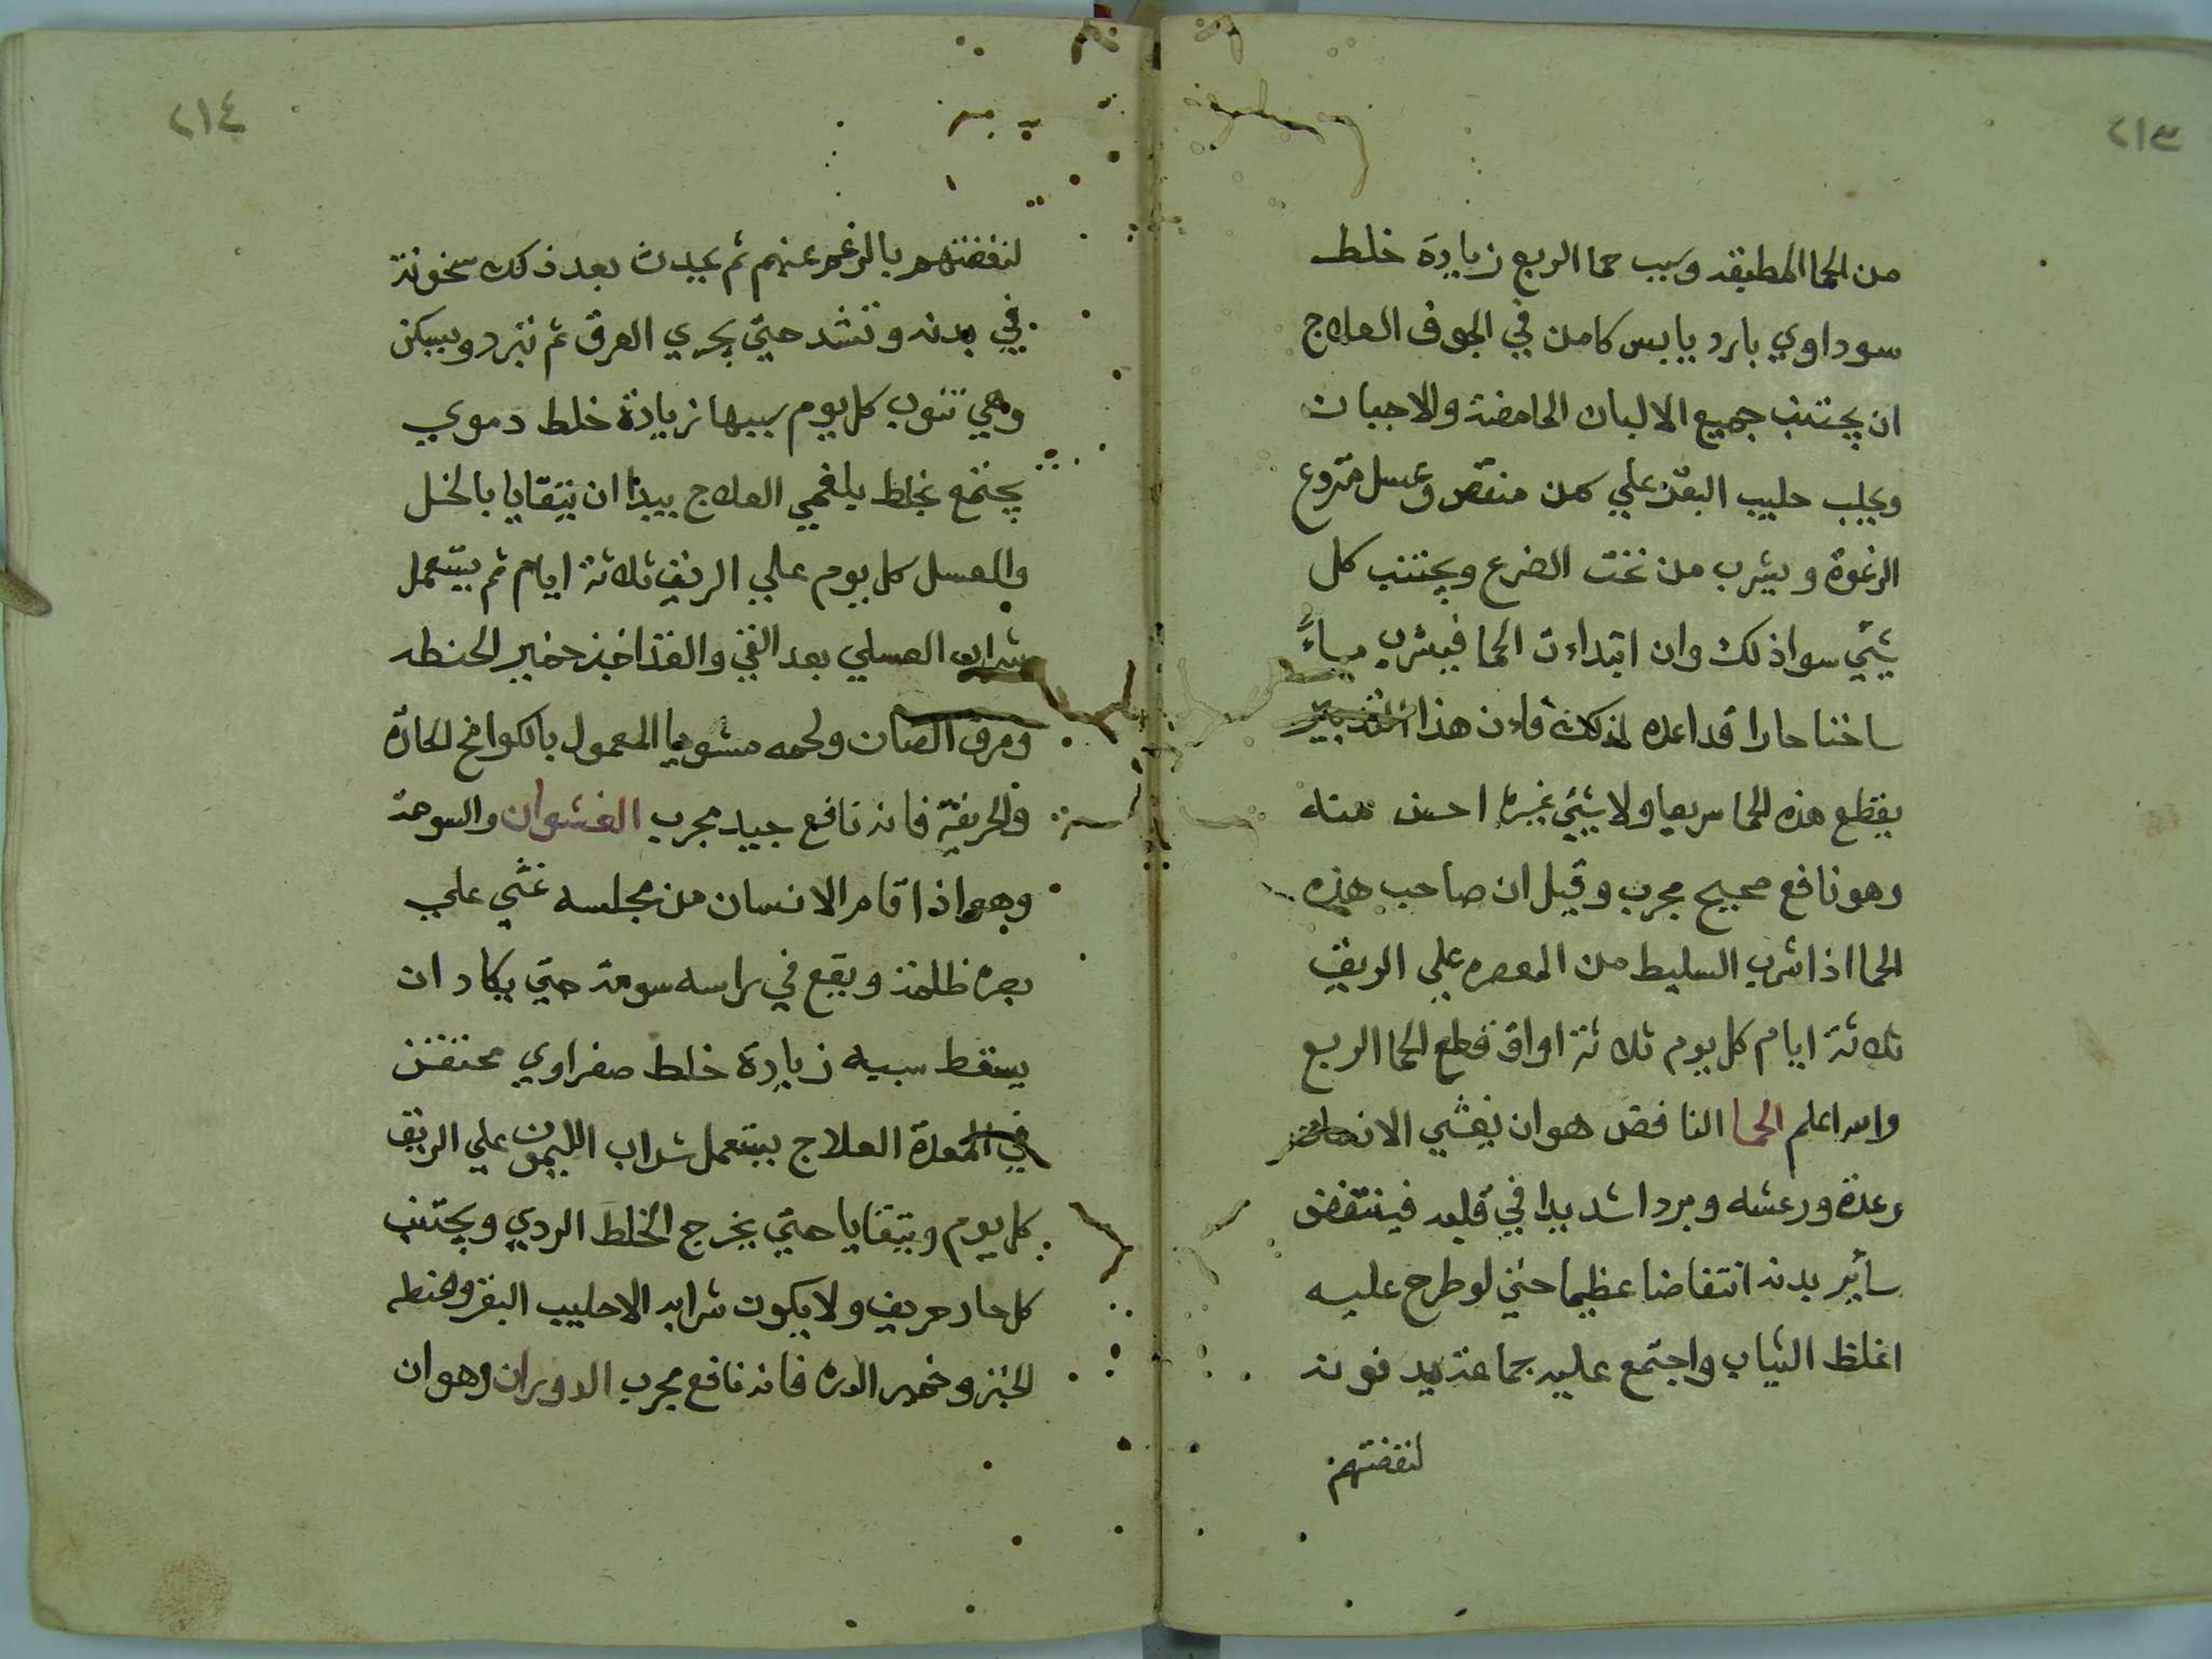 ٢١٣
من الحما المطبقه وسبب حما الربع زيادة خلط
سوداوي بارد يابس كامن في الجوف العلاج
ان يجتنب جميع الالبان الحامضة والاجبان
ويحلب حليب البقر علي سمن منقص وعسل منزوع
الرغوة ويشرب من تحت الضرع ويجتنب كل
شيّ سوا ذلك وان ابتداءت الحما فيشرب ماءً
ساخنا حارا قد اعده لذلك فاءن هذا التدبير
يقطع هذه الحما سريعا ولا شيّ غيره احسن منه
وهو نافع صحيح مجرب وقيل ان صاحب هذه
الحما اذا شرب السليط من المعصره علي الريق
ثلاثة ايام كل يوم ثلاثة اواق قطع الحما الربع
والله اعلم الحما النافض هو ان يغشي الانسان
رعدة ورعشه وبردا شديدا في قلبه فينتفض
سأير بدنه انتفاضا عظيما حتي لو طرح عليه
اغلظ الثياب واجتمع عليه جماعة يدفونه
لنفضتهم
٢١٤
لنفضتهم بالرغم عنهم ثم يحدث بعد ذلك سخونة
في بدنه وتشد حتي يجري العرق ثم تبرد ويسكن
وهي تنوب كل يوم سببها زيادة خلط دموي
يجتمع بخلط بلغمي العلاج يبدا ان يتقايا بالخل
والعسل كل يوم علي الريق ثلاثة ايام ثم يستعمل
شراب العسلي بعد القي والغذا خبز خمير الحنطه
ومرق الضان ولحمه مشويا المعمول بالكوامخ الحارة
والحريفة فانه نافع جيد مجرب الغشوان والسومة
وهو اذا قام الانسان من مجلسه غشي علي
بصره ظلمة ويقع في راسه سومة حتي يكاد ان
يسقط سببه زيادة خلط صفراوي محتقن
في المعدة العلاج يستعمل شراب الليمون علي الريق
كل يوم ويتقايا حتي يخرج الخلط الردي ويجتنب
كل حار حريف ولا يكون شرابه الا حليب البقر وحنطه
الخبز وخمير الدره فانه نافع مجرب الدوران وهو ان